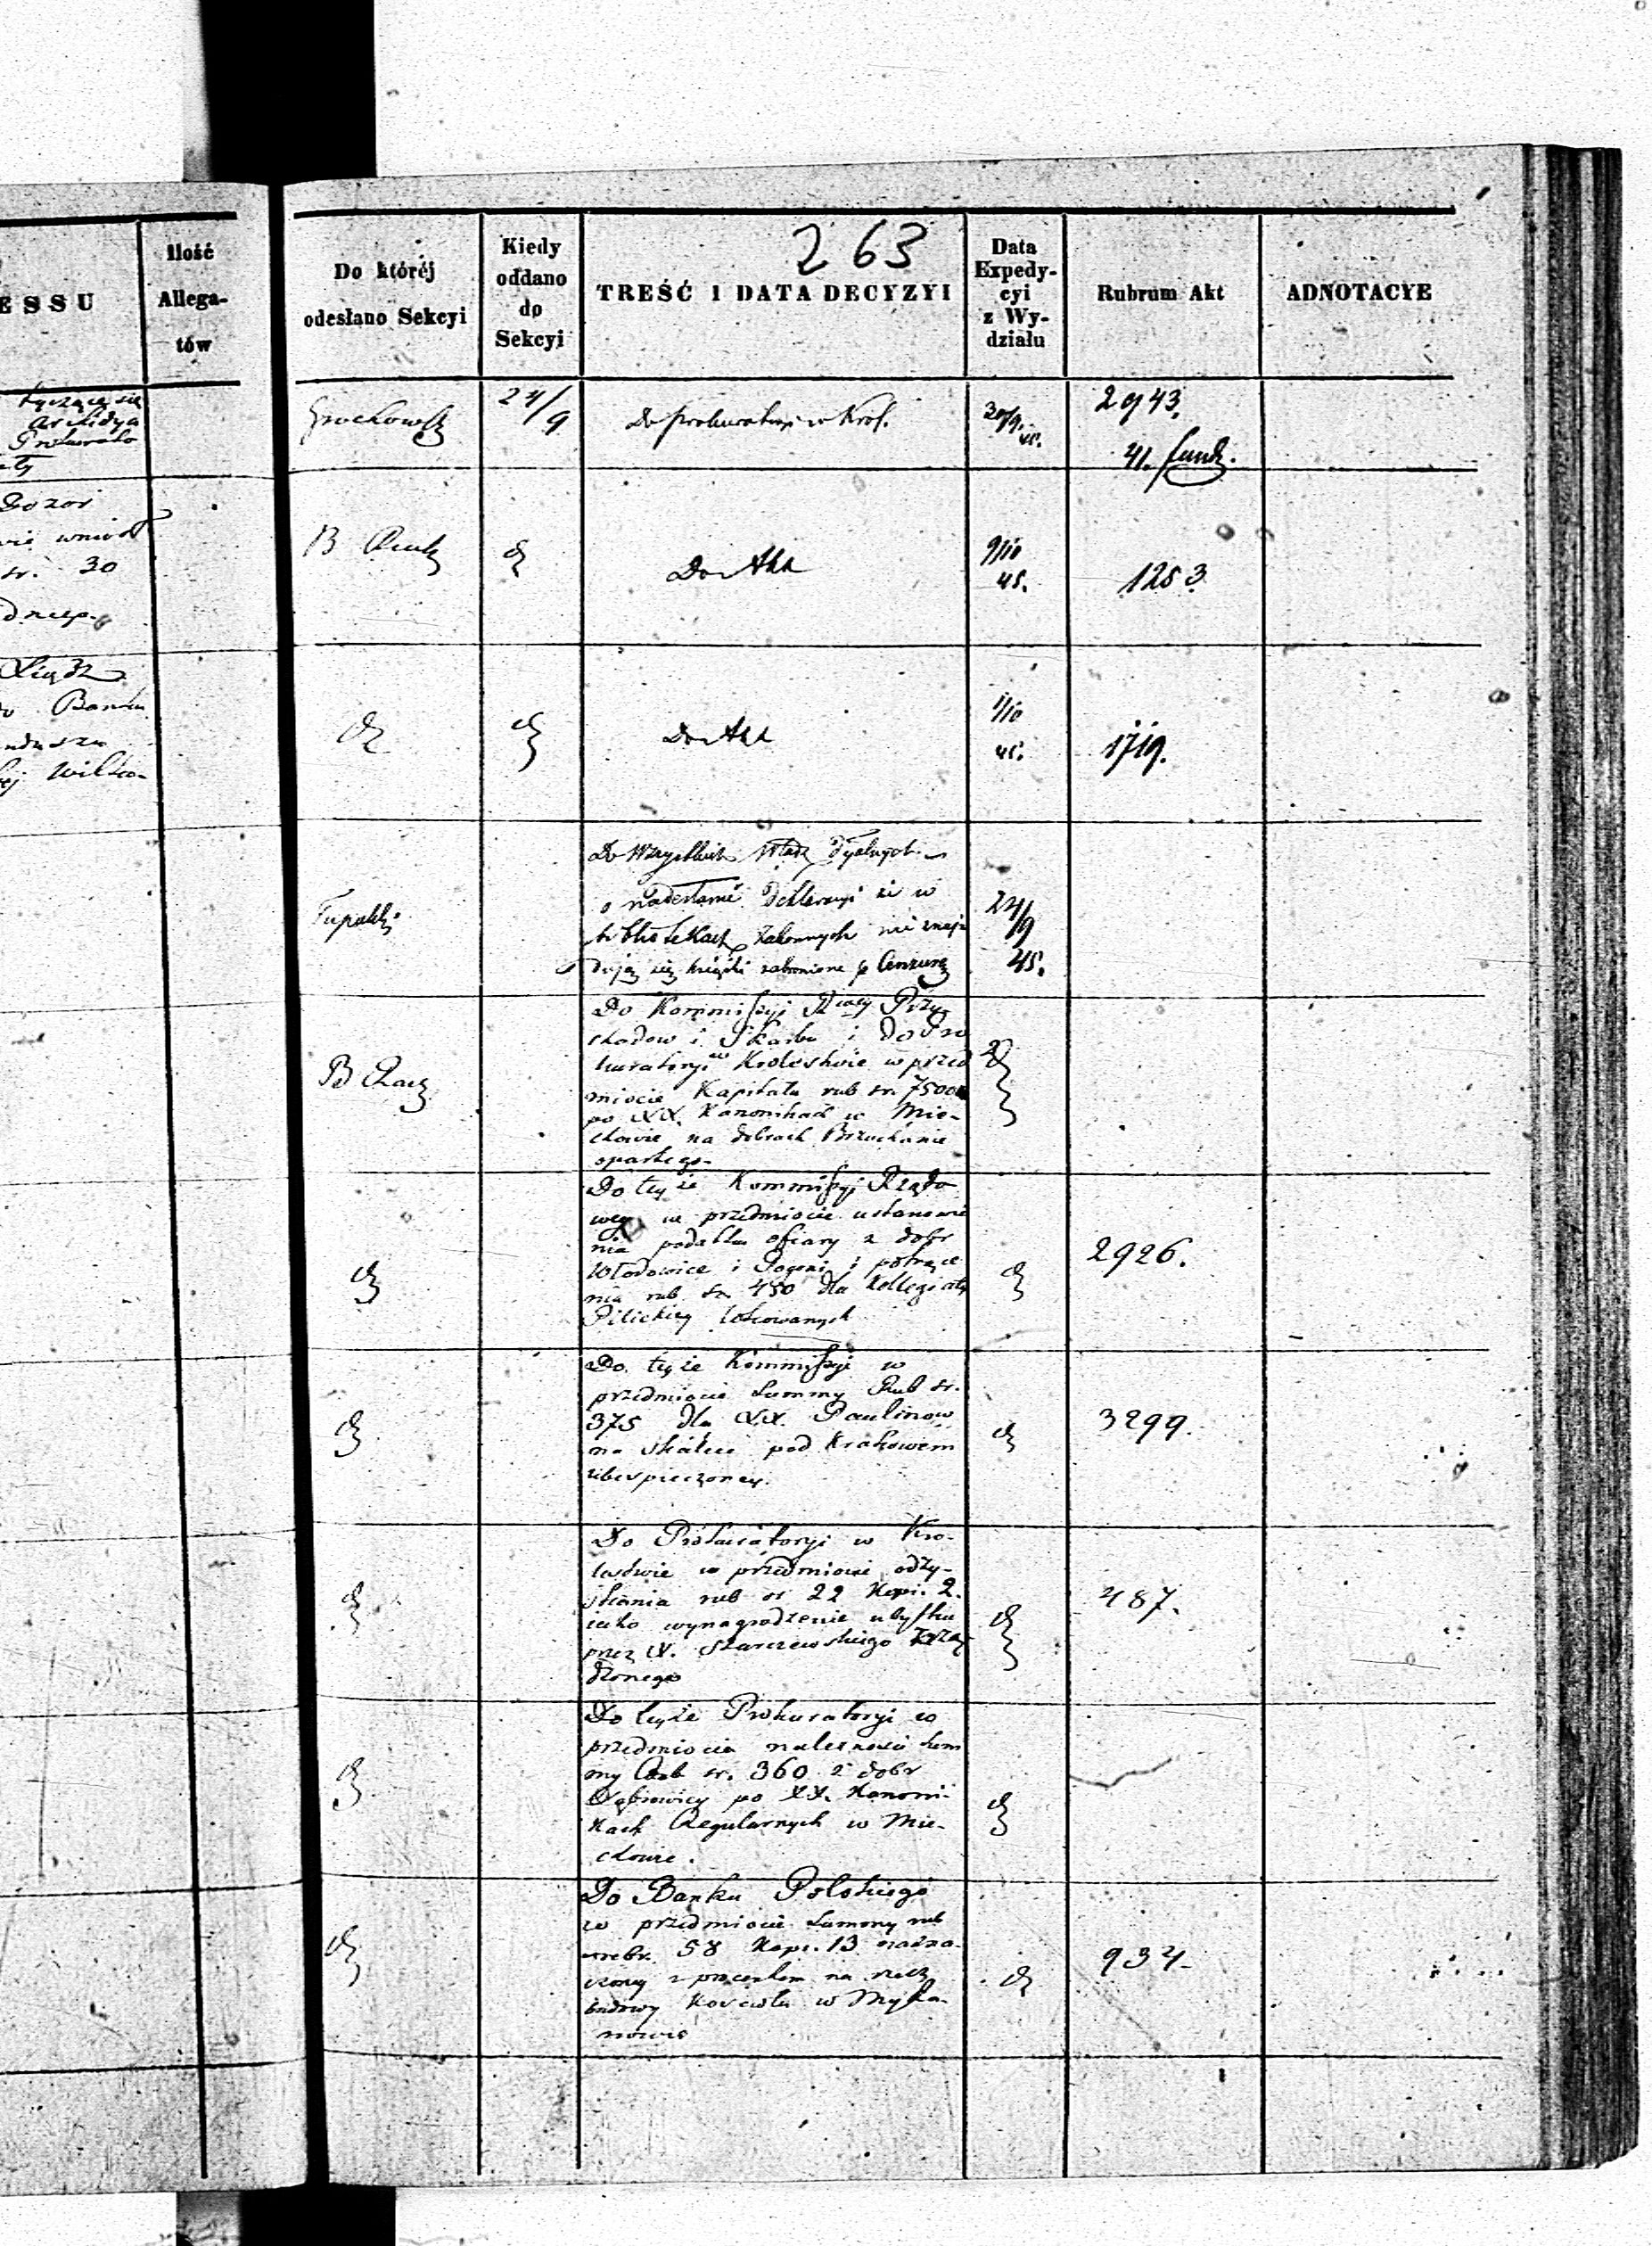 ESSU
Ilość
Allega-
tów
tyczące się
Archidya
Prokurato
Dozor
wniósł
sr. 30
Banku
Wilko-
263
Do któréj
odesłano Sekcyi
Kiedy
oddano
do
Sekcyi
TREŚĆ I DATA DECYZYI
Data
Expedy-
cyi
z Wy-
działu
Rubrum Akt
ADNOTACYE
24/9
Do prokuratoryi w Król.
30/9 45.
2943.
41. fund.
B
Do Akt
9/10
45.
1253
Do Akt
1/10
45.
1719.
Do Wszystkich Władz
o nadesłanie deklaracyi że w
bibliotekach zakonnych nie znaj
dują się książki zabronione p Cenzurę
24/9
45.
Do Kommissyi Rwey Przy
chodow i Skarbu i do Pro
kuratoryi w Krolestwie w przed
miocie Kapitału rub sr. 7500
po XX. Kanonikach w Mie-
chowie na dobrach Brzuchanie
opartego-
Do tejże Kommissyi Rządo
wej w przedmiocie ustanowie
nia podatku ofiary z dobr
Włodowice i Pogoni i potrące
nia rub. sr. 450 dla Kollegiaty
Pilickiey lokowanych
2926.
Do tejże Kommissyi w
przedmiocie Summy Rub sr.
375 dla XX. Paulinow
na Skałce pod Krakowem
zabespieczoney.
3299.
Do Prokuratoryi w Kro-
lestwie w przedmiocie odzy-
skania rub sr 22 Kopi. 2.
jako wynagrodzenie ubytku
przez X. Starczewskiego zrzą
dzonego
487.
Do tejże Prokuratoryi w
przedmiocie należności Sum
my Rub sr. 360 z dobr
Dąbrowicy po XX. Kanoni-
kach Regularnych w Mie-
chowie.
Do Banku Polskiego
w przedmiocie Summy rub
srebr. 58 Kopi. 13
z procentem na rzecz
budowy Kościoła w Myka-
nowie
934.